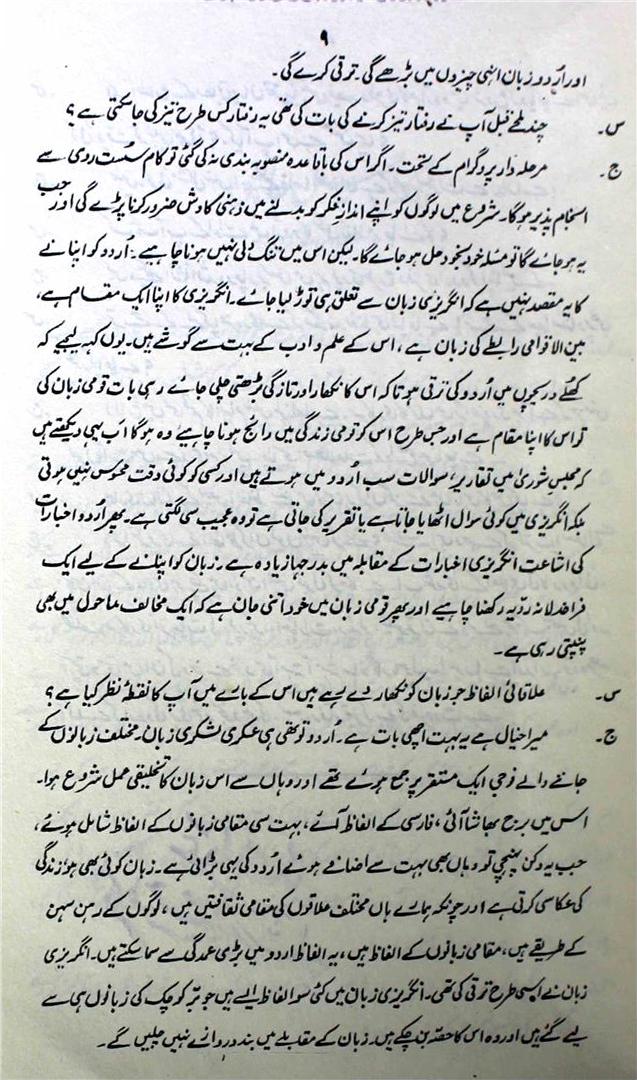 ۹
اور اُردو زبان انہی چیزوں میں بڑھے گی۔ ترقی کرے گی۔
س۔ چند لمحے قبل آپ نے رفتار تیز کرنے کی بات کی تھی یہ رفتار کس طرح تیز کی جا سکتی ہے؟
ج۔ مرحلہ وار پروگرام کے تحت۔ اگر اس کی باقاعدہ منصوبہ بندی نہ کی گئی تو کام سُست روی سے
انجام پذیر ہوگا۔ شروع میں لوگوں کو اپنے اندازِ فکر کو بدلنے میں ذہنی کاوش ضرور کرنا پڑے گی اور جب
یہ ہو جائے گا تو مسئلہ خود بخود حل ہو جائے گا۔ لیکن اس میں تنگ دلی نہیں ہونا چاہیے۔ اُردو کو اپنانے
کا یہ مقصد نہیں ہے کہ انگریزی زبان سے تعلق ہی توڑ لیا جائے۔ انگریزی کا اپنا ایک مقام ہے،
بین الاقوامی رابطے کی زبان ہے، اس کے علم و ادب کے بہت سے گوشے ہیں۔ یوں کہہ لیجیے کہ
کھلے دریچوں میں اُردو کی ترقی ہو تاکہ اس کا نکھار اور تازگی بڑھتی چلی جائے رہی بات قومی زبان کی
تو اس کا اپنا مقام ہے اور جس طرح اس کو قومی زندگی میں رائج ہونا چاہیے وہ ہوگا اب یہی دیکھتے ہیں
کہ مجلسِ شوریٰ میں تقاریر، سوالات سب اُردو میں ہوتے ہیں اور کسی کو کوئی دقت محسوس نہیں ہوتی
بلکہ انگریزی میں کوئی سوال اٹھایا جاتا ہے یا تقریر کی جاتی ہے تو وہ عجیب سی لگتی ہے۔ پھر اُردو اخبارات
کی اشاعت انگریزی اخبارات کے مقابلہ میں بدرجہا زیادہ ہے۔ زبان کو اپنانے کے لیے ایک
فراخدلانہ رویّہ رکھنا چاہیے اور پھر قومی زبان میں خود اتنی جان ہے کہ ایک مخالف ماحول میں بھی
پنپتی رہی ہے۔
س۔ علاقائی الفاظ جو زبان کو نکھار دے رہے ہیں اس کے بارے میں آپ کا نقطۂ نظر کیا ہے؟
ج۔ میرا خیال ہے یہ بہت اچھی بات ہے۔ اُردو تو تھی ہی عسکری لشکری زبان۔ مختلف زبانوں کے
جاننے والے فوجی ایک مستقر پر جمع ہوئے تھے اور وہاں سے اس زبان کا تخلیقی عمل شروع ہوا۔
اس میں برج بھاشا آئی، فارسی کے الفاظ آئے، بہت سی مقامی زبانوں کے الفاظ شامل ہوئے،
جب یہ دکن پہنچی تو وہاں بھی بہت سے اضافے ہوئے اُردو کی یہی بڑائی ہے۔ زبان کوئی بھی ہو زندگی
کی عکاسی کرتی ہے اور چونکہ ہمارے ہاں مختلف علاقوں کی مقامی ثقافتیں ہیں، لوگوں کے رہن سہن
کے طریقے ہیں، مقامی زبانوں کے الفاظ ہیں، یہ الفاظ اردو میں بڑی عمدگی سے سما سکتے ہیں۔ انگریزی
زبان نے ایسی طرح ترقی کی تھی۔ انگریزی زبان میں کئی سو الفاظ ایسے ہیں جو برّ کوچک کی زبانوں ہی سے
لیے گئے ہیں اور وہ اس کا حصّہ بن چکے ہیں۔ زبان کے مقابلے میں بند دروازے نہیں چلیں گے۔